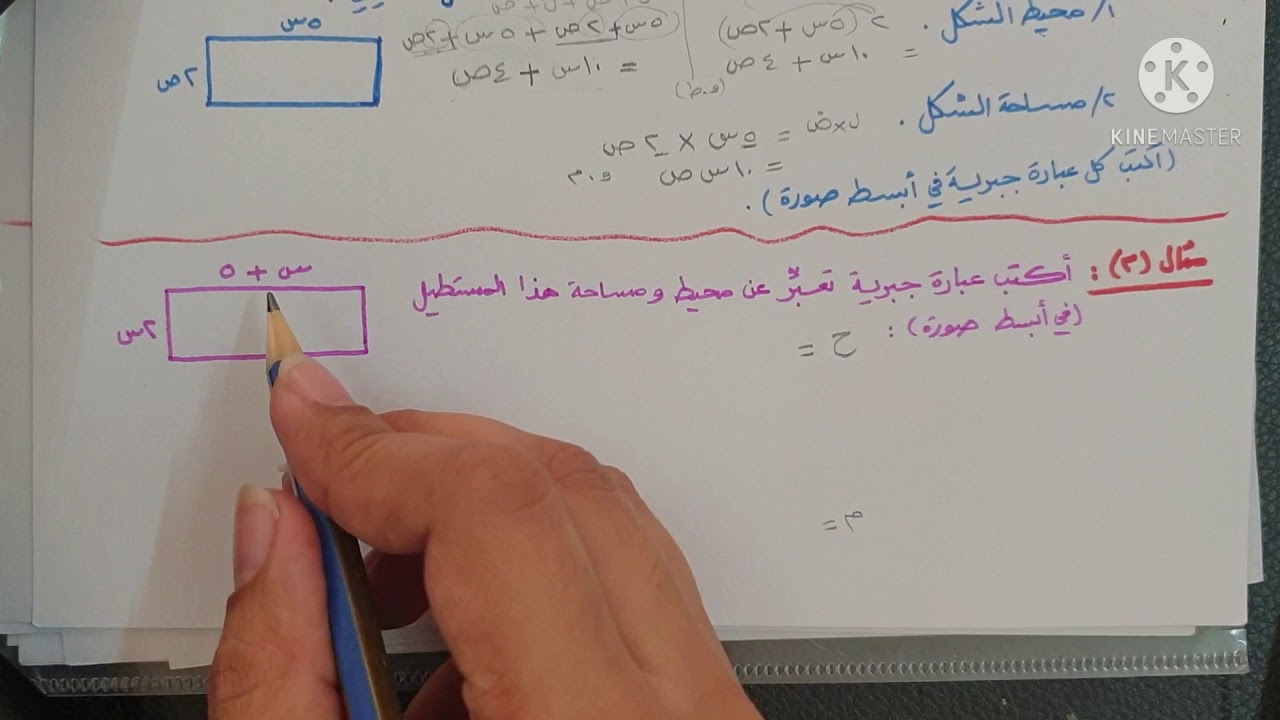 ١/ محيط الشكل .
٢ (٥س + ٢ص)
= ١٠س + ٤ص
٥س + ٢ص + ٥س + ٢ص
= ١٠س + ٤ص
(و.ط)
٥س
٢ص
٢/ مساحة الشكل .
ل×ض = ٥س × ٢ص
= ١٠س ص و.م
(أكتب كل عبارة جبرية في أبسط صورة) .
KINEMASTER
مثال (٣) : أكتب عبارة جبرية تعبّر عن محيط ومساحة هذا المستطيل
(في أبسط صورة) :
س + ٥
٢س
ح =
م =